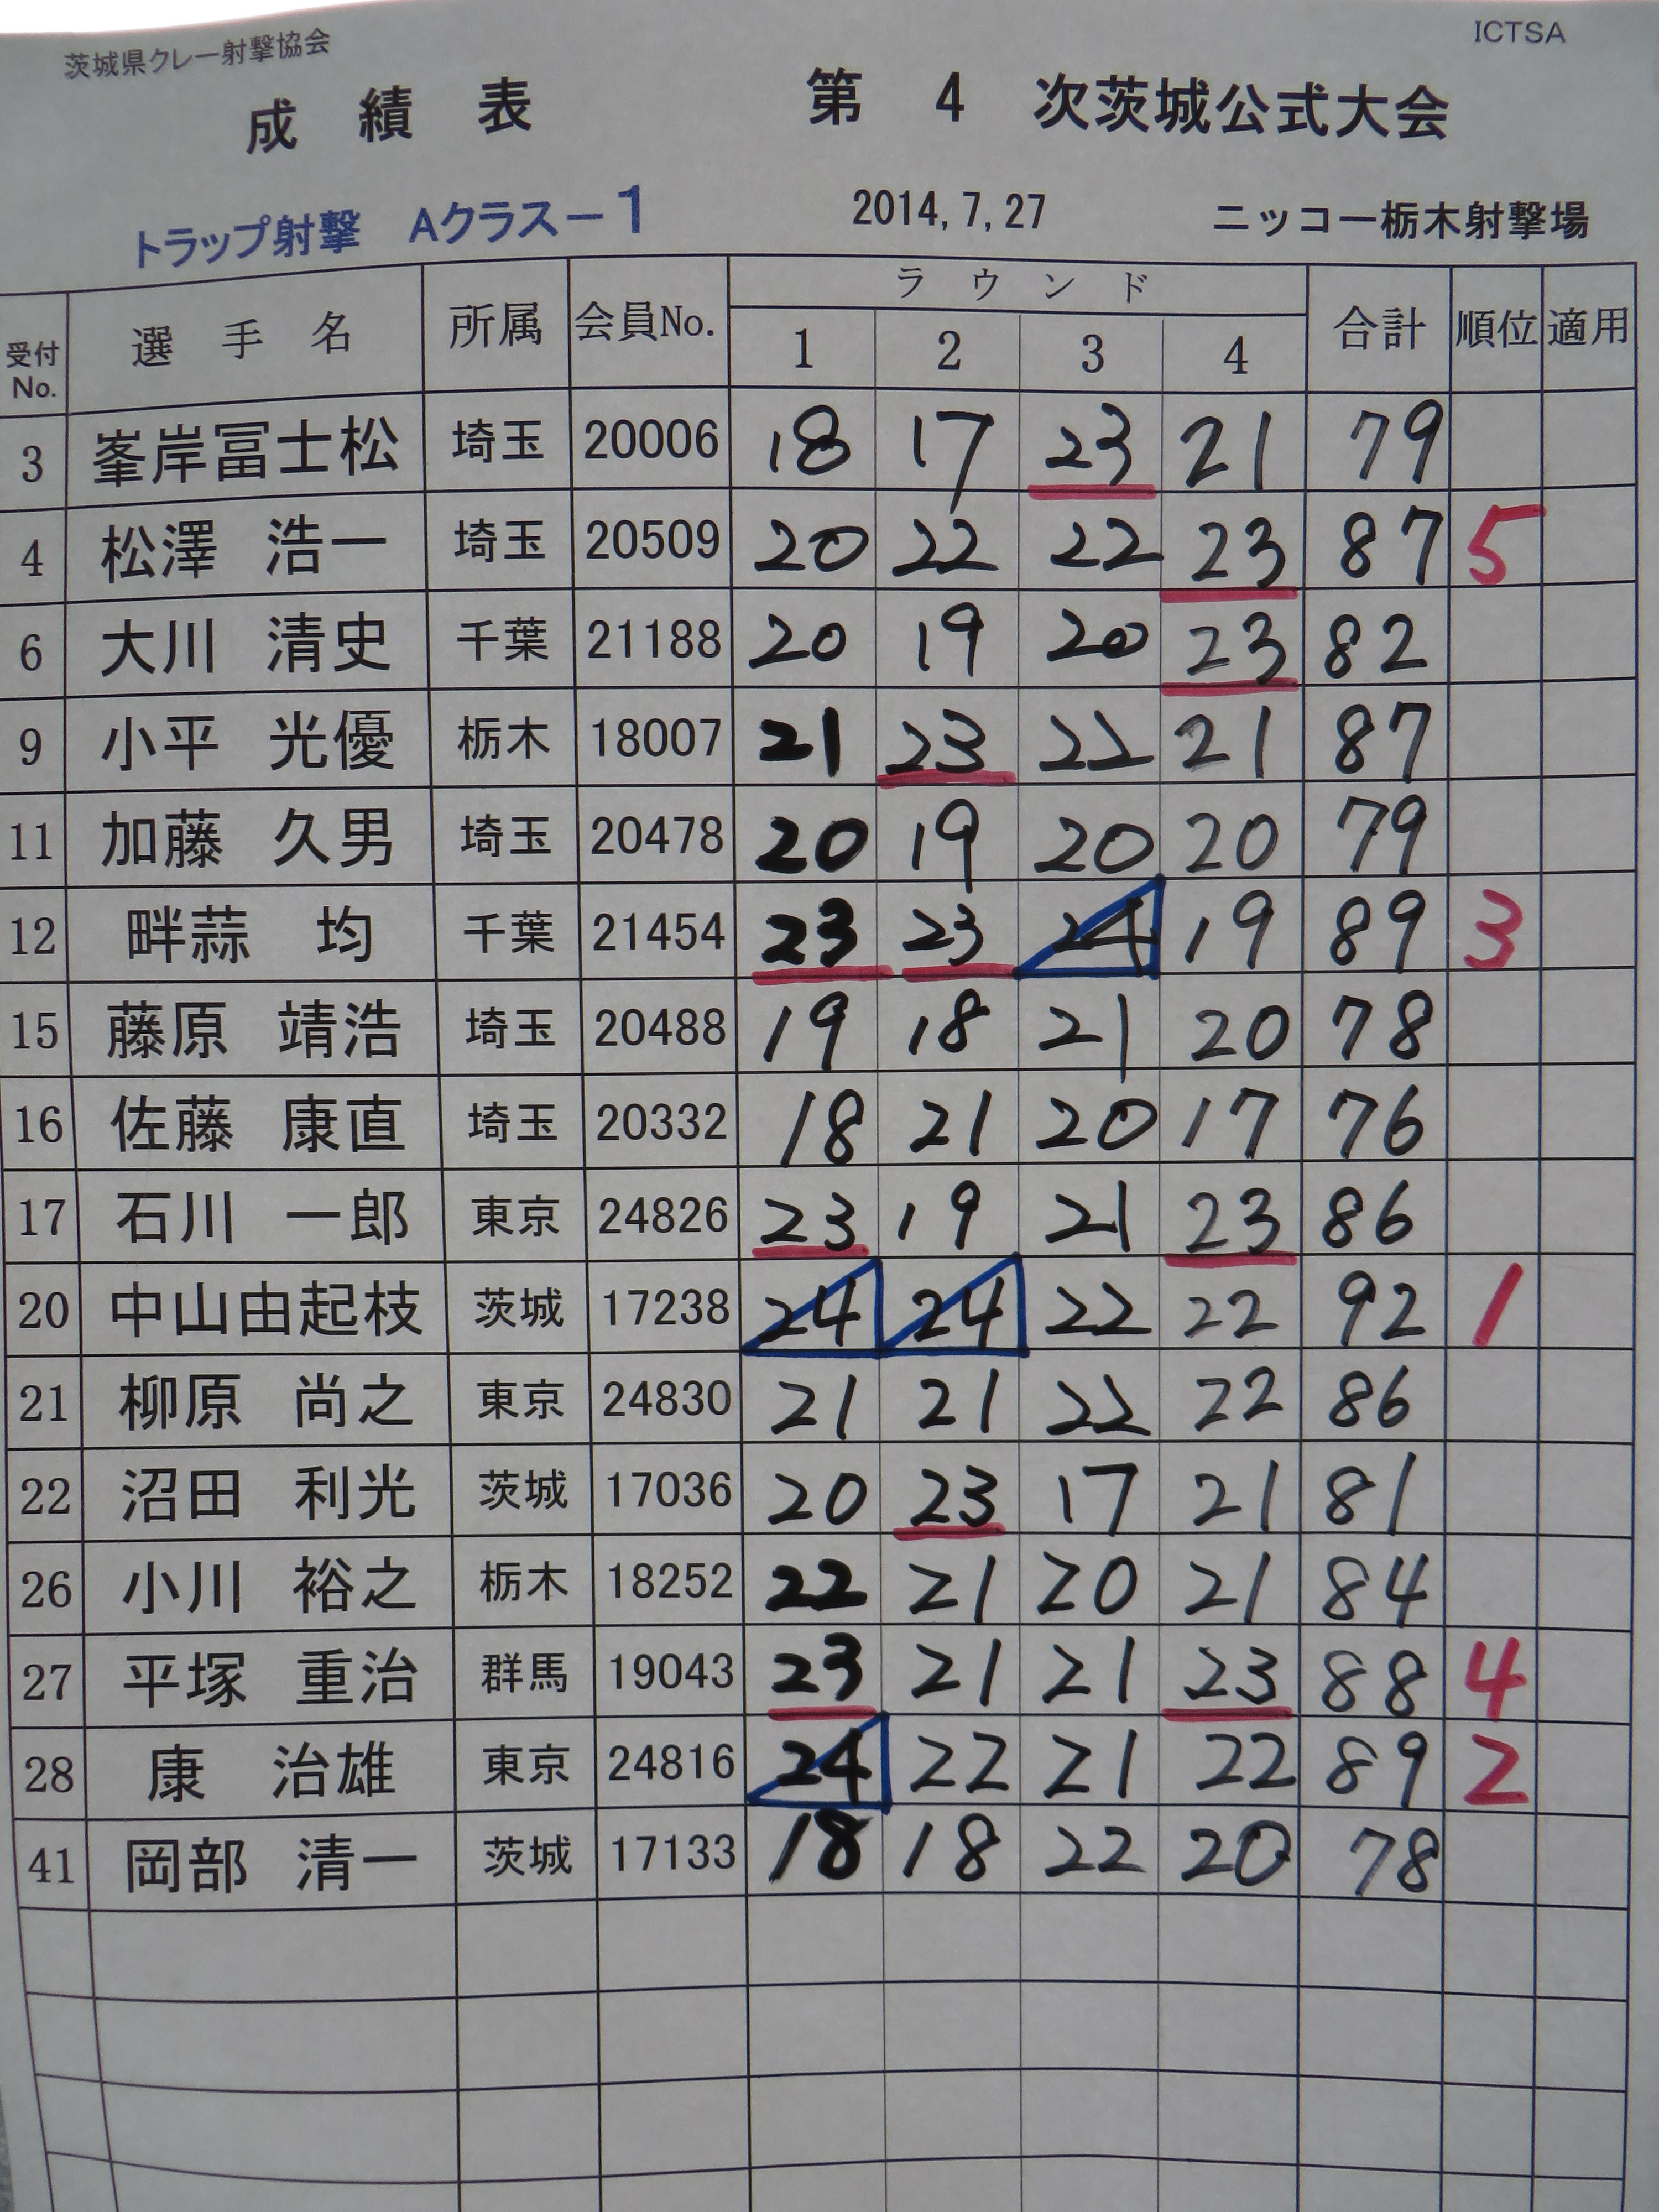 茨城県クレー射撃協会
ICTSA
成績表 第4次茨城公式大会
トラップ射撃 Aクラスー1 2014,7,27 ニッコー栃木射撃場
受付No. 選手名 所属 会員No. ラウンド 合計 順位 適用
1 2 3 4
3 峯岸冨士松 埼玉 20006 18 17 23 21 79
4 松澤 浩一 埼玉 20509 20 22 22 23 87 5
6 大川 清史 千葉 21188 20 19 20 23 82
9 小平 光優 栃木 18007 21 23 22 21 87
11 加藤 久男 埼玉 20478 20 19 20 20 79
12 畔蒜 均 千葉 21454 23 23 24 19 89 3
15 藤原 靖浩 埼玉 20488 19 18 21 20 78
16 佐藤 康直 埼玉 20332 18 21 20 17 76
17 石川 一郎 東京 24826 23 19 21 23 86
20 中山由起枝 茨城 17238 24 24 22 22 92 1
21 柳原 尚之 東京 24830 21 21 22 22 86
22 沼田 利光 茨城 17036 20 23 17 21 81
26 小川 裕之 栃木 18252 22 21 20 21 84
27 平塚 重治 群馬 19043 23 21 21 23 88 4
28 康 治雄 東京 24816 24 22 21 22 89 2
41 岡部 清一 茨城 17133 18 18 22 20 78